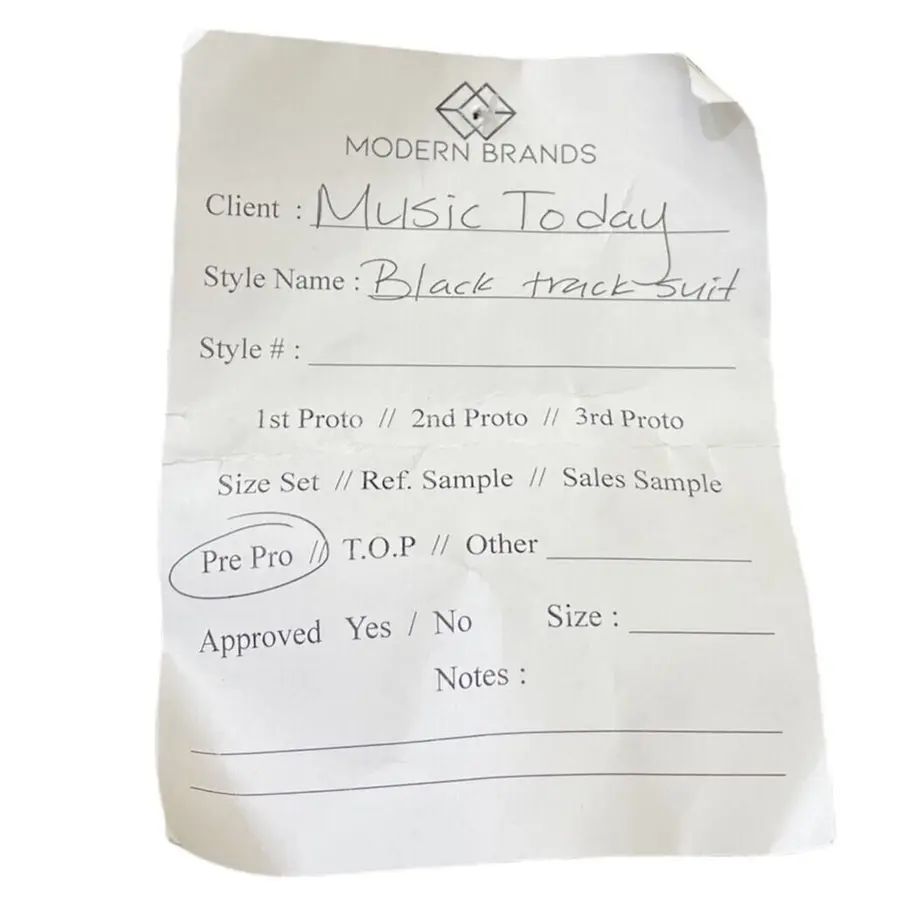 MODERN BRANDS
Client : Music Today
Style Name : Black track suit
Style # :
1st Proto // 2nd Proto // 3rd Proto
Size Set // Ref. Sample // Sales Sample
Pre Pro // T.O.P // Other
Approved Yes / No Size :
Notes :